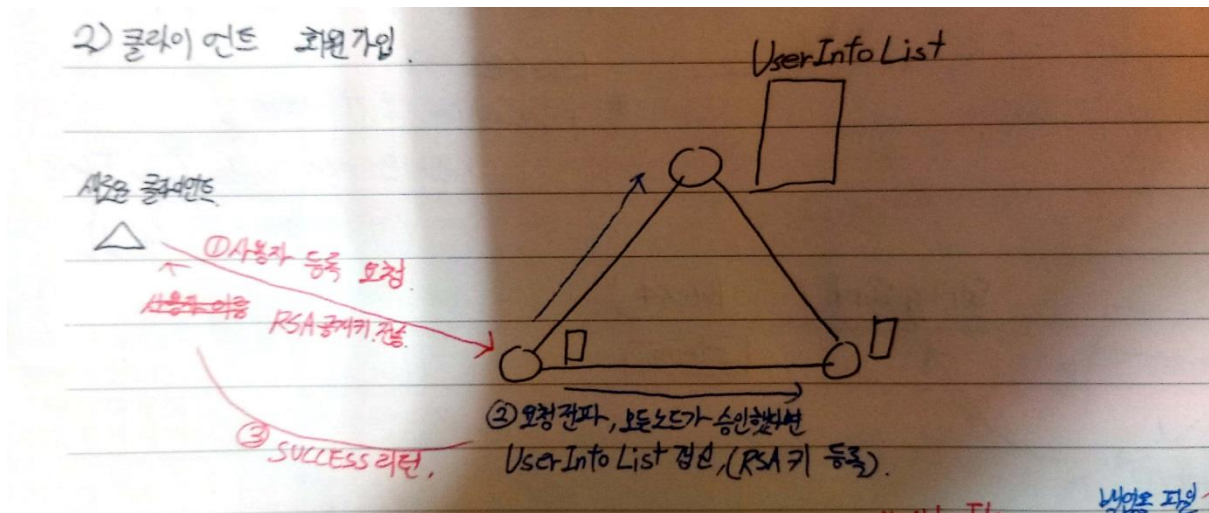 2) 클라이언트 회원가입.
UserInfoList
새로운 클라이언트
① 사용자 등록 요청.
사용자 이름
RSA 공개키 전송.
② 요청전파, 모든노드가 승인했다면
UserInfoList 갱신, (RSA 키 등록).
③ SUCCESS 리턴,